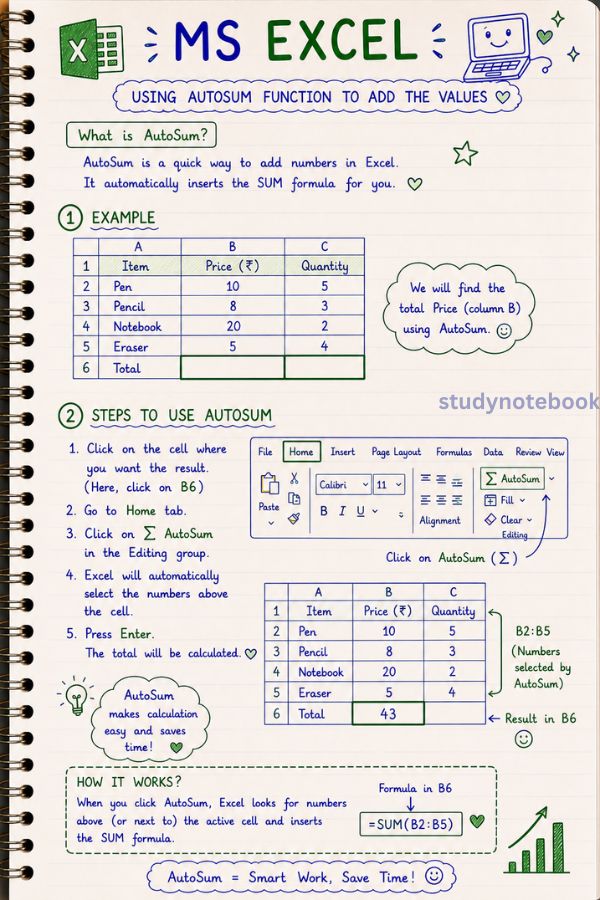 X
MS EXCEL
USING AUTOSUM FUNCTION TO ADD THE VALUES
What is AutoSum?
AutoSum is a quick way to add numbers in Excel.
It automatically inserts the SUM formula for you.
1 EXAMPLE
A B C
1 Item Price (₹) Quantity
2 Pen 10 5
3 Pencil 8 3
4 Notebook 20 2
5 Eraser 5 4
6 Total
We will find the
total Price (column B)
using AutoSum.
studynotebook
2 STEPS TO USE AUTOSUM
1. Click on the cell where
you want the result.
(Here, click on B6)
2. Go to Home tab.
3. Click on Σ AutoSum
in the Editing group.
4. Excel will automatically
select the numbers above
the cell.
5. Press Enter.
The total will be calculated.
File Home Insert Page Layout Formulas Data Review View
Paste
Calibri 11
B I U
Alignment
Σ AutoSum
Fill
Clear
Editing
Click on AutoSum (Σ)
A B C
1 Item Price (₹) Quantity
2 Pen 10 5
3 Pencil 8 3
4 Notebook 20 2
5 Eraser 5 4
6 Total 43
B2:B5
(Numbers
selected by
AutoSum)
Result in B6
AutoSum
makes calculation
easy and saves
time!
HOW IT WORKS?
When you click AutoSum, Excel looks for numbers
above (or next to) the active cell and inserts
the SUM formula.
Formula in B6
=SUM(B2:B5)
AutoSum = Smart Work, Save Time!